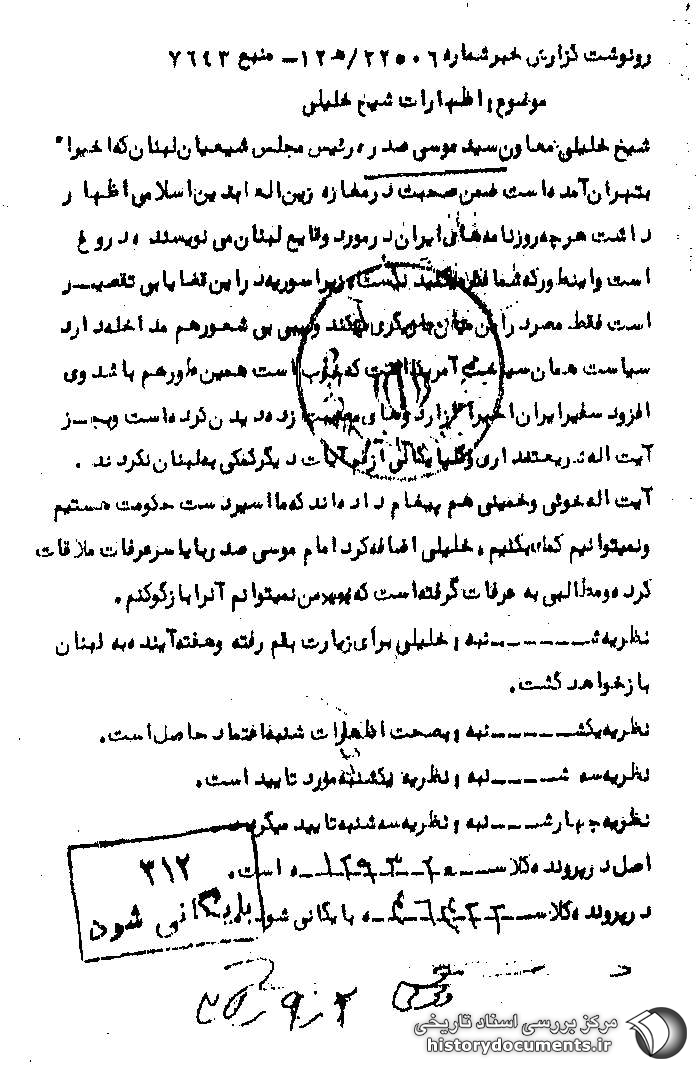 رونوشت گزارش خبر شماره ۲۲۵۰۶/ه‍ ۱۲ – منبع ۷۶۴۳
موضوع: اظهارات شیخ خلیلی
شیخ خلیلی معاون سید موسی صدر رئیس مجلس شیعیان لبنان که اخیرا"
بتهران آمده است ضمن صحبت در مغازه زین العابدین اسلامی اظهار
داشت هرچه روزنامه های ایران در مورد وقایع لبنان می نویسند دروغ
است و اینطور که شما فکر میکنید نیست زیرا سوریه در این قضایا بی تقصیر
است فقط مصر در این میان بازیگری میکند و لیبی بی شعور هم مداخله دارد
سیاست همان سیاست آمریکا است که خوب است همین طور هم باشد وی
افزود سفیر ایران اخیرا گزارد و های مصیبت زده دیدن کرده است و بجز
آیت اله شریعتمداری و گلپایگانی از قم آیات دیگر کمکی به لبنان نکردند .
آیت اله خوئی و خمینی هم پیغام داده اند که ما اسیر دست حکومت هستیم
و نمیتوانیم کمک بکنیم ، خلیلی اضافه کرد امام موسی صدر با یاسر عرفات ملاقات
کرده و مطالبی به عرفات گفته است که من نمیتوانم آنرا بازگو کنم .
نظریه شنبه : خلیلی برای زیارت بقم رفته و هفته آینده به لبنان
باز خواهد گشت .
نظریه یکشنبه : بصحت اظهارات شنبه اعتماد حاصل است .
نظریه سه شنبه : نظریه یکشنبه مورد تایید است .
نظریه چهارشنبه : نظریه سه شنبه تایید میگردد
اصل در پرونده کلاسه است .
در پرونده کلاسه بایگانی شود
۳۱۲
بایگانی شود
مرکز بررسی اسناد تاریخی
historydocuments.ir